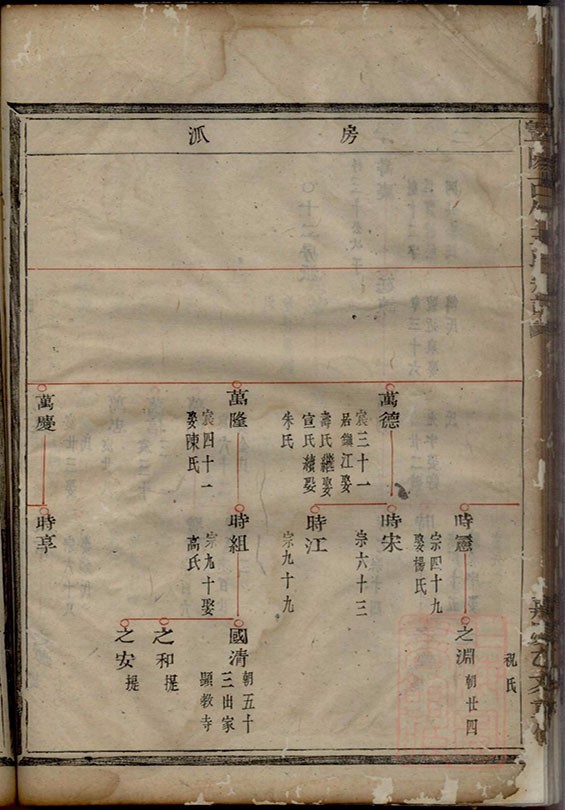 房派
祝氏
時
宗四十九
娶楊氏
之淵
朝廿四
萬德
宸三十一
居鎮江娶
壽氏繼娶
宣氏續娶
朱氏
時宋
宗六十三
時江
宗九十九
萬隆
宸四十一
娶陳氏
時組
宗九十娶
高氏
國清
朝五十
三出家
顯教寺
之和
提
之安
提
萬慶
時享